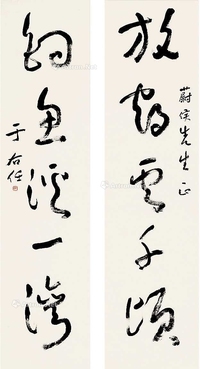 放鶴雲千頃
蔚侯先生正
釣魚溪一灣
于右任